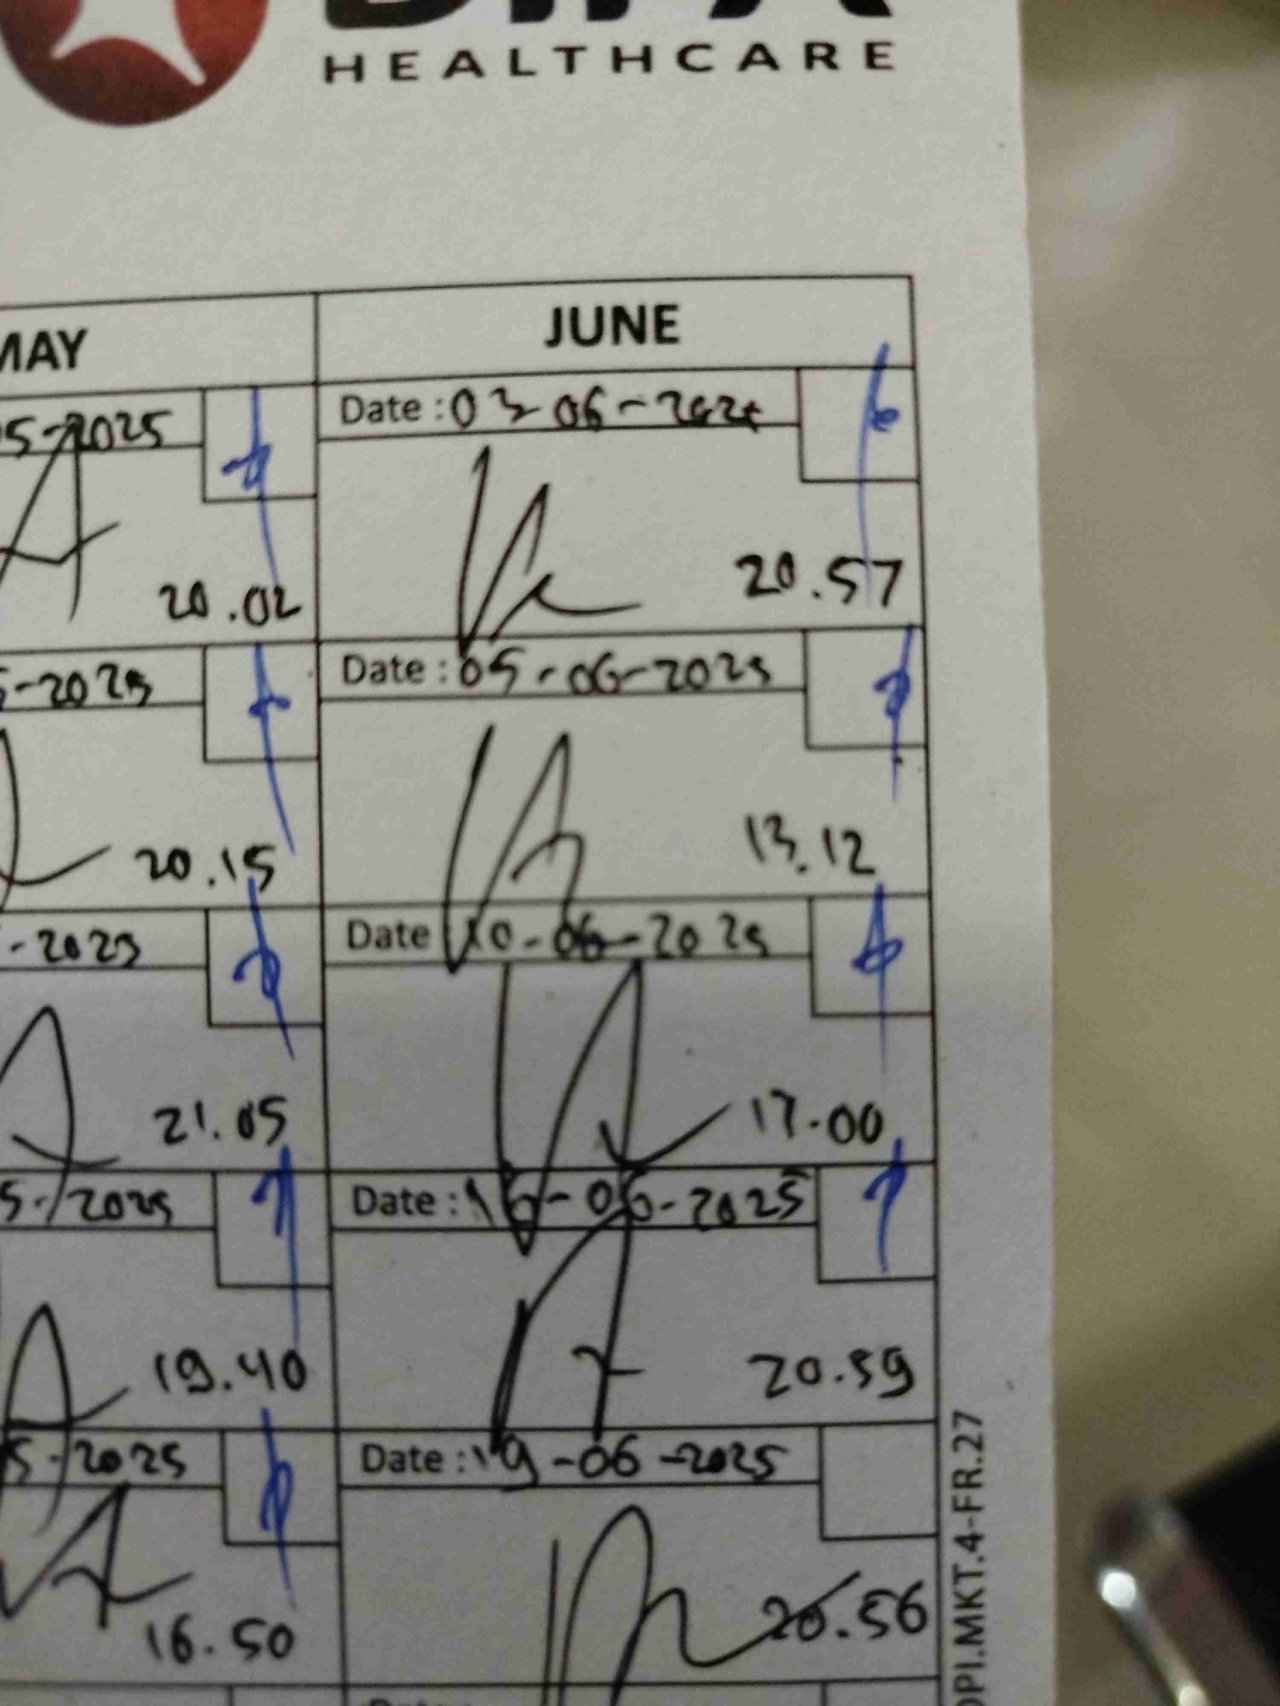 HEALTHCARE
MAY
JUNE
5-2025
Date : 03-06-2025
20.02
20.57
5-2025
Date : 05-06-2025
20.15
13.12
-2025
Date 10-06-2025
21.05
17.00
5-2025
Date : 16-06-2025
19.40
20.59
5-2025
Date : 19-06-2025
16.50
20.56
DPI.MKT.4-FR.27